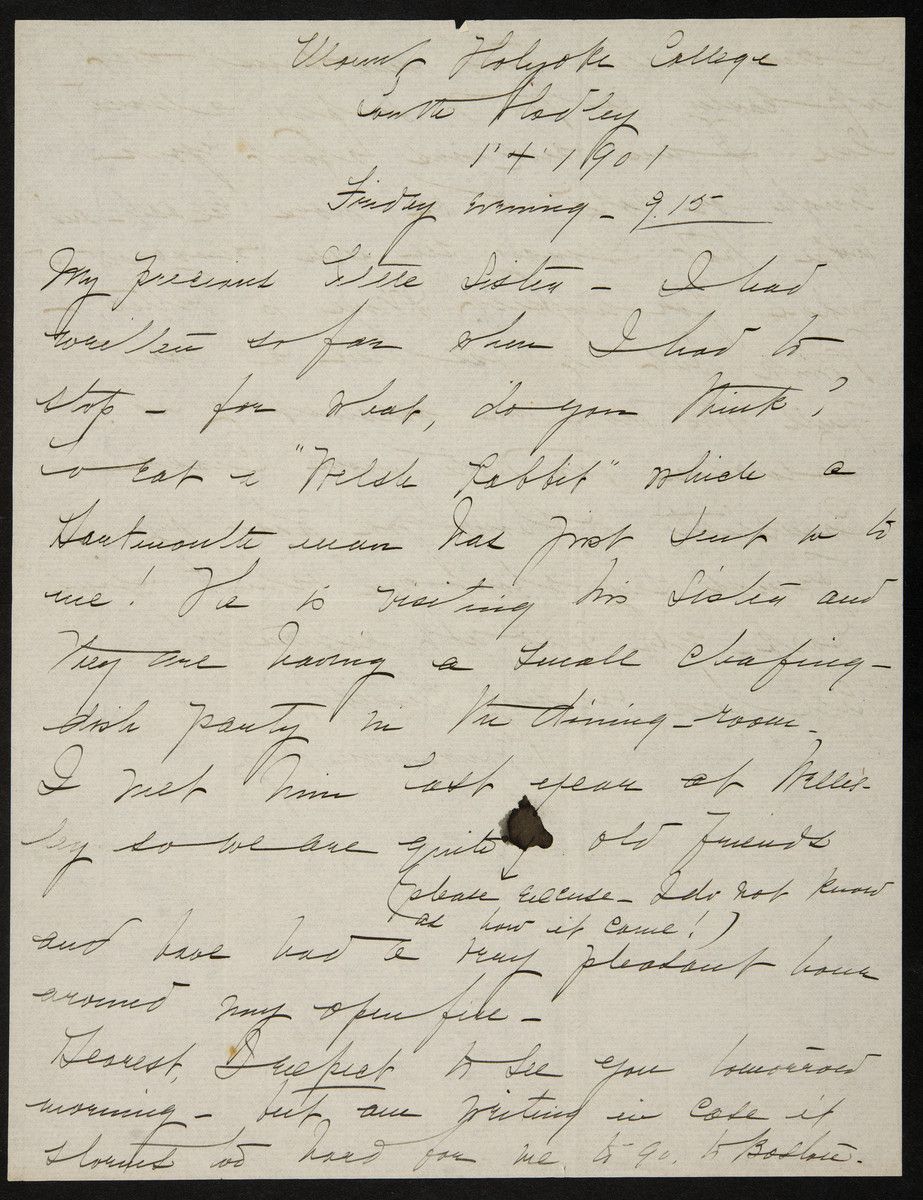 Mount Holyoke College
South Hadley
1' 4' 1901
Friday evening - 9.15
My precious Little Sister - I had
written so far when I had to
stop - for what, do you think?
To eat a "Welsh Rabbit" which a
Dartmouth man has just sent in to
me! He is visiting his Sister and
they are having a small chafing-
dish party in the dining-room.
I met him last year at Welles-
ley so we are quite old friends
(please excuse - I do not know
as how it come!)
and have had a very pleasant hour
around my open fire -
Dearest, I expect to see you tomorrow
morning - but am writing in case it
storms too hard for me to go to Boston.